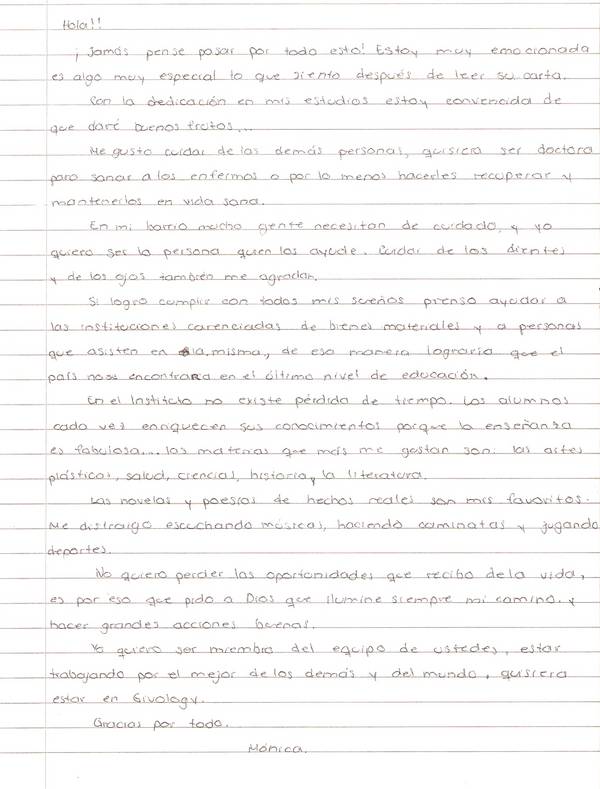 Hola!!
¡Jamás pense pasar por todo esto! Estoy muy emocionada
es algo muy especial lo que siento después de leer su carta.
Con la dedicación en mis estudios estoy convencida de
que daré buenos frutos...
Me gusta cuidar de las demás personas, quisiera ser doctora
para sanar a los enfermos o por lo menos hacerles recuperar y
mantenerlos en vida sana.
En mi barrio mucho gente necesitan de cuidado, y yo
quiero ser la persona quien los ayude. Cuidar de los dientes
y de los ojos también me agradan.
Si logro cumplir con todos mis sueños pienso ayudar a
las instituciones carenciadas de bienes materiales y a personas
que asisten en la misma, de esa manera lograría que el
país no se encontrara en el último nivel de educación.
En el Instituto no existe pérdida de tiempo. Los alumnos
cada vez enriquecen sus conocimientos porque la enseñanza
es fabulosa... las materias que más me gustan son: las artes
plásticas, salud, ciencias, historia y la literatura.
Las novelas y poesías de hechos reales son mis favoritos.
Me distraigo escuchando músicas, haciendo caminatas y jugando
deportes.
No quiero perder las oportunidades que recibo de la vida,
es por eso que pido a Dios que ilumine siempre mi camino. y
hacer grandes acciones buenas.
Yo quiero ser miembro del equipo de ustedes, estar
trabajando por el mejor de los demás y del mundo, quisiera
estar en Givology.
Gracias por todo.
Mónica.